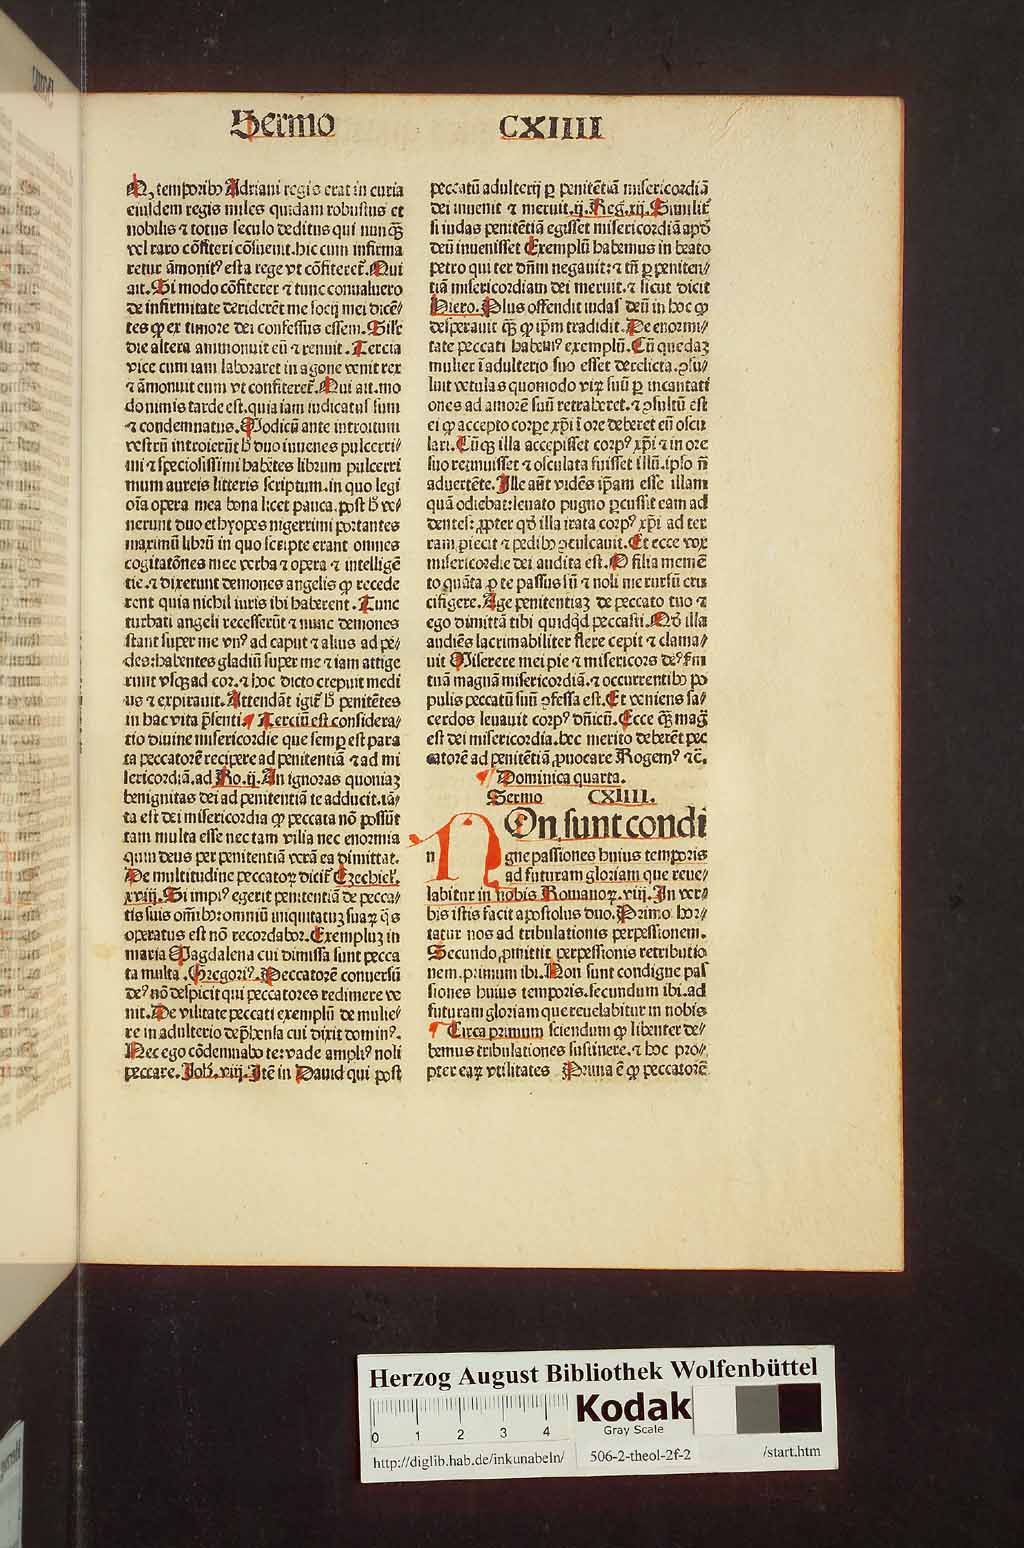 Sermo CXIIII
Qꝫ temporibꝰ Adriani regis erat in curia
eiusdem regis miles quidam robustus et
nobilis ⁊ totus seculo deditus qui nunqꝫ̄
vel raro cōfiteri cōsueuit. hic cum infirma
retur āmonitꝰ est a rege vt cōfiteret̄. Qui
ait. Si modo cōfiterer ⁊ tunc conualuero
de infirmitate deriderēt me socij mei dicē⸗
tes ꝙ ex timore dei confessus essem. Silr̄
die altera ammonuit eū ⁊ renuit. Tercia
vice cum iam laboraret in agone venit rex
⁊ āmonuit eum vt confiteret̄. Qui ait. mo
do nimis tarde est. quia iam iudicatus sum
⁊ condemnatus. Modicū ante introitum
vestrū introierūt h̄ duo iuuenes pulcerri⸗
mi ⁊ speciosissimi habētes librum pulcerri
mum aureis litteris scriptum. in quo legi
oīa opera mea bona licet pauca. post h̄ ve⸗
nerunt duo ethyopes nigerrimi portantes
maximū librū in quo scripte erant omnes
cogitatōnes mee verba ⁊ opera ⁊ intelligē
tie. ⁊ dixerunt demones angelis ꝙ recede
rent quia nichil iuris ibi haberent. Tunc
turbati angeli recesserūt ⁊ nunc demones
stant super me vnꝰ ad caput ⁊ alius ad pe⸗
des: habentes gladiū super me ⁊ iam attige
runt vsqꝫ ad cor. ⁊ hoc dicto crepuit medi
us ⁊ expirauit. Attendāt igit̄ h̄ penitētes
in hac vita p̄senti. ¶ Terciū est considera⸗
tio diuine misericordie que semꝑ est para
ta peccatorē recipere ad penitentiā ⁊ ad mi
sericordiā. ad Ro. ij. An ignoras quoniaꝫ
benignitas dei ad penitentiā te adducit. tā⸗
ta est dei misericordia ꝙ peccata nō possūt
tam multa esse nec tam vilia nec enormia
quin deus per penitentiā verā ea dimittat.
De multitudine peccatoꝝ dicit̄ Ezechiel.
xviij. Si impiꝰ egerit penitentiā de pecca⸗
tis suis om̄ibꝰ omniū iniquitatuꝫ suaꝝ q̄s
operatus est nō recordabor. Exempluꝫ in
maria Magdalena cui dimissa sunt pecca
ta multa. Gregoriꝰ. Peccatorē conuersū
deꝰ nō despicit qui peccatores redimere ve
nit. De vilitate peccati exemplū de mulie⸗
re in adulterio dep̄hensa cui dixit dominꝰ.
Nec ego cōdemnabo te: vade ampliꝰ noli
peccare. Joh. viij. Itē in Dauid qui post
peccatū adulterij ꝑ penitētiā misericordiā
dei inuenit ⁊ meruit. ij. Reg. xij. Similit̄
si iudas penitētiā egisset misericordiā apd̄
deū inuenisset Exemplū habemus in beato
petro qui ter dn̄m negauit: ⁊ tn̄ ꝑ peniten⸗
tiā misericordiam dei meruit. ⁊ sicut dicit
Hiero. Plus offendit iudas deū in hoc ꝙ
desperauit qꝫ̄ ꝙ ip̄m tradidit. De enormi⸗
tate peccati habemꝰ exemplū. Cū quedaꝫ
mulier ī adulterio suo esset derelicta. ꝯsu⸗
luit vetulas quomodo viꝝ suū ꝑ incantati
ones ad amorē suū retraheret. ⁊ ꝯsultū est
ei ꝙ accepto corꝑe xp̄i ī ore deberet eū oscu
lari. Cūqꝫ illa accepisset corpꝰ xp̄i ⁊ in ore
suo retinuisset ⁊ osculata fuisset illū. ipso n̄
aduertēte. Ille aūt vidēs ip̄am esse illam
quā odiebat: leuato pugno ꝑcussit eam ad
dentes: ꝓpter qd̄ illa irata corpꝰ xp̄i ad ter
ram ꝓiecit ⁊ pedibꝰ ꝯculcauit. Et ecce vox
misericordie dei audita est. O filia memē
to quāta ꝑ te passus sū ⁊ noli me rursū cru
cifigere. Age penitentiaꝫ de peccato tuo ⁊
ego dimittā tibi quidqd̄ peccasti. Qd̄ illa
audiēs lacrimabiliter flere cepit ⁊ clama⸗
uit Miserere mei pie ⁊ misericors deꝰ scd̄m
tuā magnā misericordiā. ⁊ occurrentibꝰ po
pulis peccatū suū ꝯfessa est. Et veniens sa⸗
cerdos leuauit corpꝰ dn̄icū. Ecce qꝫ̄ maḡ
est dei misericordia. hec merito deberēt pec
catorē ad penitētiā ꝓuocare Rogemꝰ ⁊c̄.
¶ Dominica quarta.
Sermo CXIIII.
NOn sunt condi
gne passiones huius temporis
ad futuram gloriam que reue⸗
labitur in nobis Romanoꝝ. viij. In ver⸗
bis istis facit apostolus duo. Primo hor⸗
tatur nos ad tribulationis perpessionem.
Secundo ꝓmittit perpessionis retributio
nem. primum ibi. Non sunt condigne pas
siones huius temporis. secundum ibi. ad
futuram gloriam que reuelabitur in nobis
¶ Circa primum sciendum ꝙ libenter de⸗
bemus tribulationes sustinere. ⁊ hoc pro⸗
pter eaꝝ vtilitates Prima ē ꝙ peccatorē
Herzog August Bibliothek Wolfenbüttel
0 1 2 3 4
Kodak
Gray Scale
http://diglib.hab.de/inkunabeln/ 506-2-theol-2f-2 /start.htm